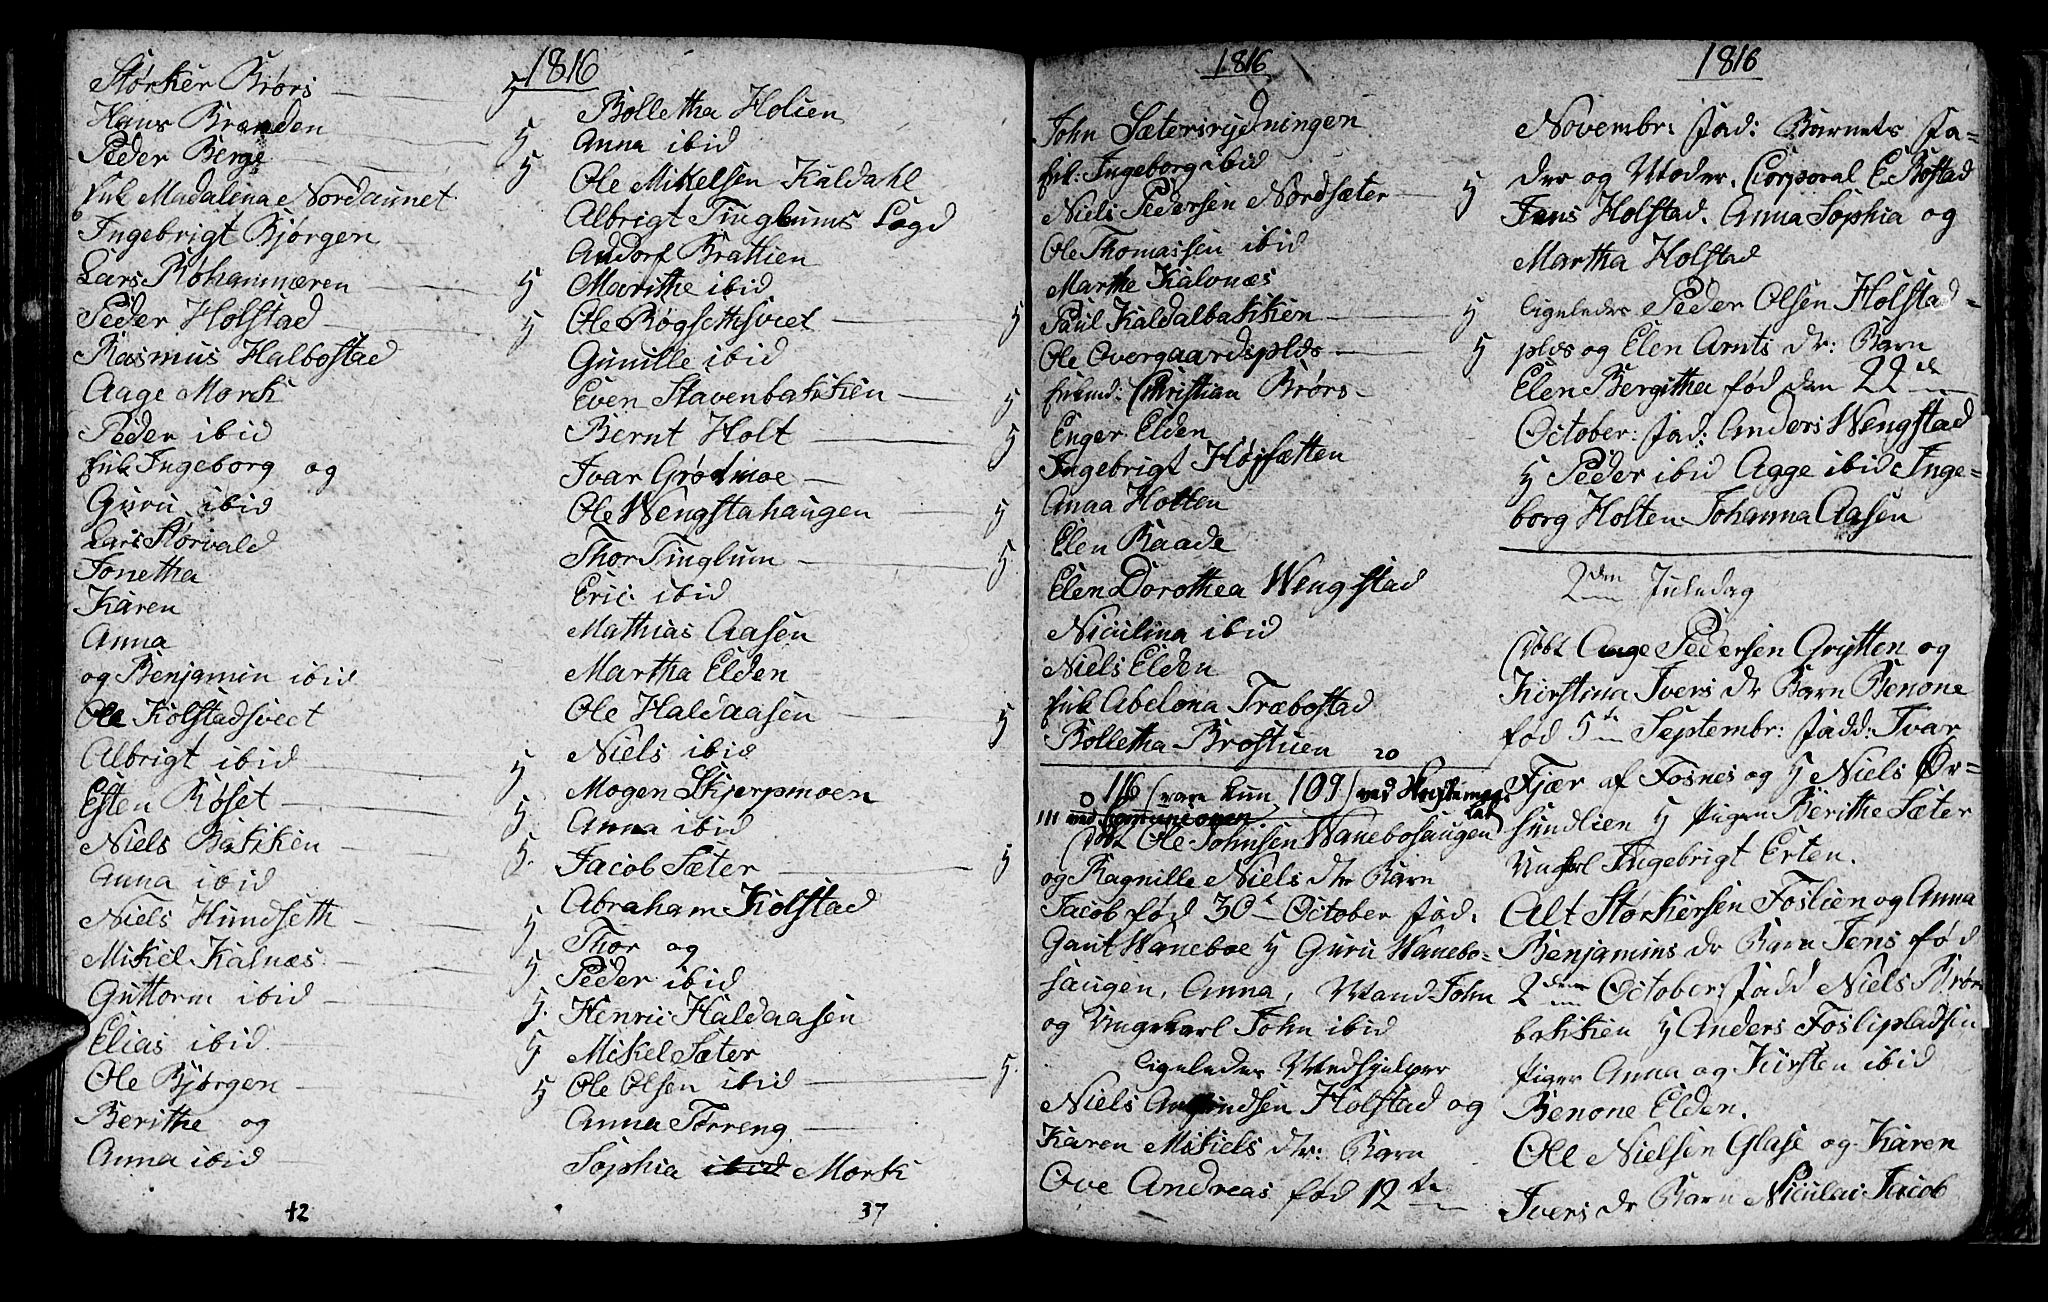 1816
Størker Brørs — 5
Hans Brenden — 5
Peder Berge — 5
Enk Madalena Nordaunet
Ingebrigt Bjørgen
Lars Røhammæren — 5
Peder Holstad — 5
Rasmus Halbostad
Aage Mork
Peder ibid
Enk Ingeborg og
Guru ibid
Lars Størvald
Jonetha
Karen
Anna
og Benjamin ibid
Ole Kolstadsveet
Albrigt ibid — 5
Esten Røset — 5
Niels Bakken — 5.
Anna ibid
Niels Hundseth — 5
Mikel Kalnæs — 5
Guttorm ibid — 5.
Elias ibid — 5
Ole Bjørgen — 5
Berithe og
Anna ibid
42
Bolletha Holien
Anna ibid
Ole Mikkelsen Kaldahl
Albrigt Tinglums Logd
Andorf Brattien
Marithe ibid
Ole Røgsethsveet — 5
Gunille ibid
Even Stavenbakken — 5
Bernt Holt — 5
Ivar Grødmoe —
Ole Wengstahaugen — 5
Thor Tinglum — 5
Eric ibid
Mathias Aasen
Martha Elden
Ole Haldaasen — 5
Niels ibid
Mogen Skjerpmoen
Anna ibid
Jacob Sæter — 5
Abraham Kolstad
Thor og
Peder ibid
Henric Haldaasen
Mikel Sæter
Ole Olsen ibid — 5.
Anna Torreng
Sophia ibid Mork
37
1816
John Sætersrydningen
Enk: Ingeborg ibid
Niels Pedersen Nordsæter — 5
Ole Thomassen ibid
Marthe Kalvnæs
Paul Kaldalbakken — 5
Ole Overgaardsplds — 5
Enkmd: Christian Brørs —
Enger Elden
Ingebrigt Højsætten
Anaa Holten
Elen Raade
Elen Dorothea Wengstad
Niculina ibid
Niels Elden
Enk Abelona Træbostad
Bolletha Brostuen 20
116 (vare kun 109) ved
111 ved Communionen
Døbt Ole Johnsen Wanebohaugen
og Ragnille Niels dtr Barn
Jacob fød 30te October fad:
Gaut Waneboe 5 Guru Wanebo-
haugen, Anna, Mand John
og Ungekarl John ibid
Ligeledes Medhjelper
Niels Amundsen Holstad og
Karen Mikels dtr: Barn
Ove Andreas fød 12te
1816
Novembr: fad: Barnets Fa-
der og Moder, Corporal E. Bostad
Jens Holstad. Anna Sophia og
Martha Holstad
Ligeledes Peder Olsen Holstad-
plds og Elen Arnts dr: Barn
Elen Bergitha fød den 22de
October: fad: Anders Wengstad
5 Peder ibid Agge ibid: Inge-
borg Holten Johanna Aasen
2den Juledag
Døbt Aage Pedersen Grytten og
Kirstina Ivers dr Barn Benone
fød 5te Septembr: fadd: Ivar
Fjær af Fosnes og 5 Niels Ør-
sundlien 5 Pigen Berithe Sæter
Unkarl Ingebrigt Erten.
Alt Størkersen Foslien og Anna
Benjamins dr Barn Jens fød
2den October: fadd Niels Brørs
bakken 5 Anders Foslipladsen
Piger Anna og Kirsten ibid
Benone Elden.
Ole Nielsen Glase og Karen
Ivers dr Barn Niculai Jacob